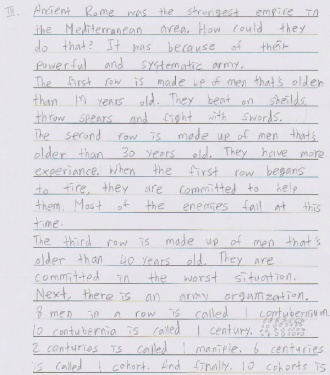 III. Ancient Rome was the strongest empire in
the Mediterranean area. How could they
do that? It was because of their
powerful and systematic army.
The first row is made up of men that's older
than 17 years old. They beat on sheilds,
throw spears and fight with swords.
The second row is made up of men that's
older than 30 years old. They have more
experiance. When the first row begans
to fire, they are committed to help
them. Most of the enemies fail at this
time.
The third row is made up of men that's
older than 40 years old. They are
committed in the worst situation.
Next, there is an army organization.
8 men in a row is called 1 contubernium.
10 contubernia is called 1 century.
2 centuries is called 1 maniple. 6 centuries
is called 1 cohort. And finally. 10 cohorts is